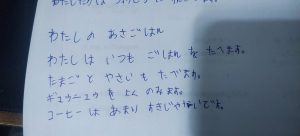 わたしの あさごはん
わたしは いつも ごはん を たべます。
たまごと やさいも たべます。
ギュウニュウ を よく のみます。
コーヒーは あまり すきじゃないです。